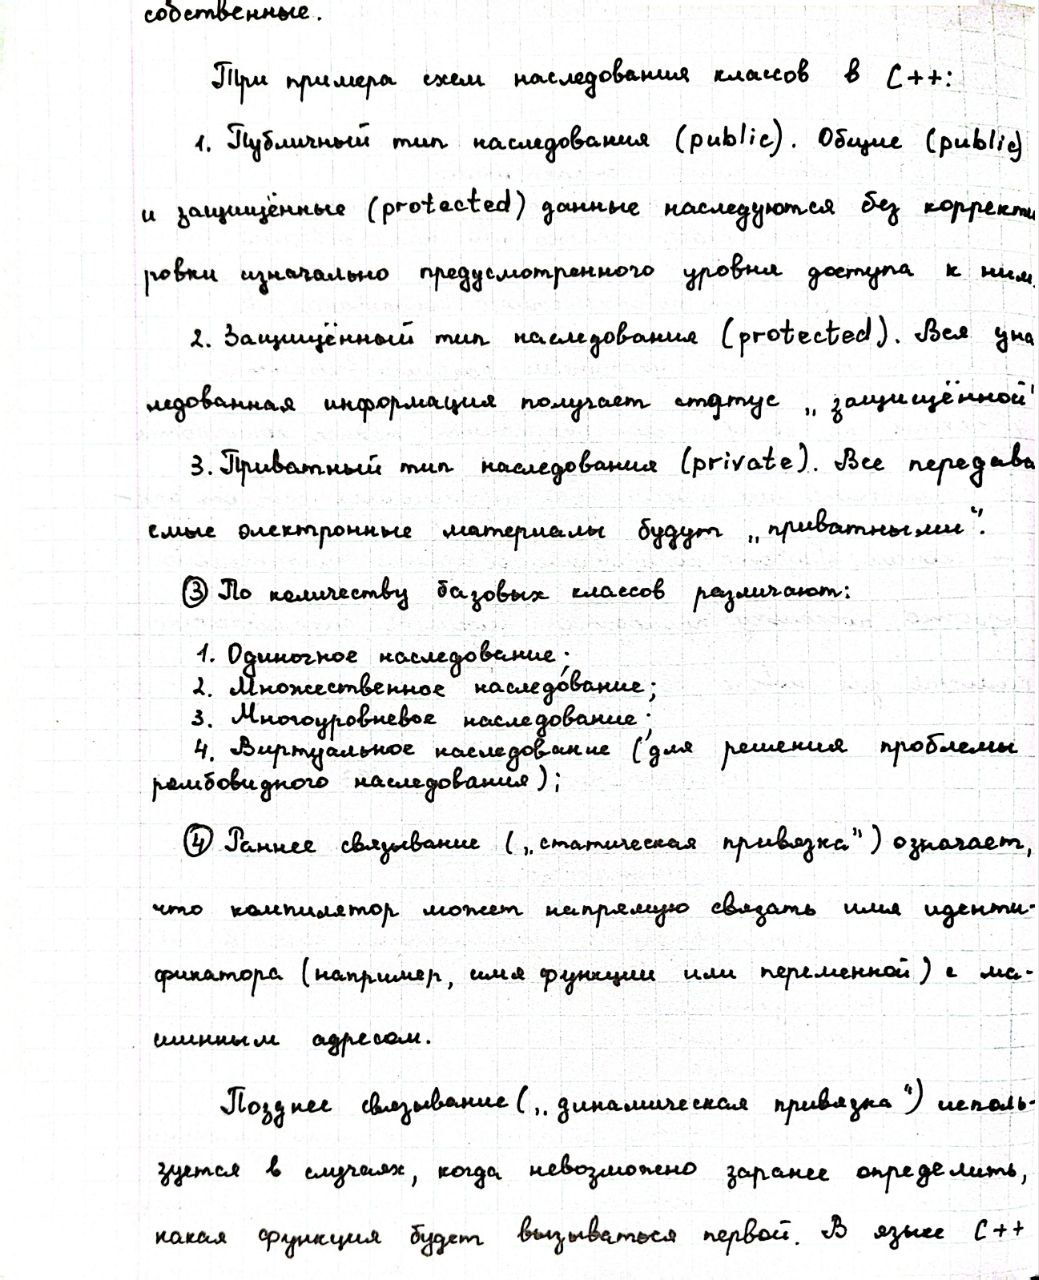 собственные.
Три примера схем наследования классов в C++:
1. Публичный тип наследования (public). Общие (public)
и защищённые (protected) данные наследуются без корректи
ровки изначально предусмотренного уровня доступа к ним.
2. Защищённый тип наследования (protected). Вся уна
ледованная информация получает статус „защищённой"
3. Приватный тип наследования (private). Все передава
емые электронные материалы будут „приватными".
③ По количеству базовых классов различают:
1. Одиночное наследование;
2. Множественное наследование;
3. Многоуровневое наследование;
4. Виртуальное наследование (для решения проблемы
ромбовидного наследования);
④ Раннее связывание („статическая привязка") означает,
что компилятор может напрямую связать имя иденти-
фикатора (например, имя функции или переменной) с ма-
шинным адресом.
Позднее связывание („динамическая привязка") исполь-
зуется в случаях, когда невозможно заранее определить,
какая функция будет вызываться первой. В языке C++